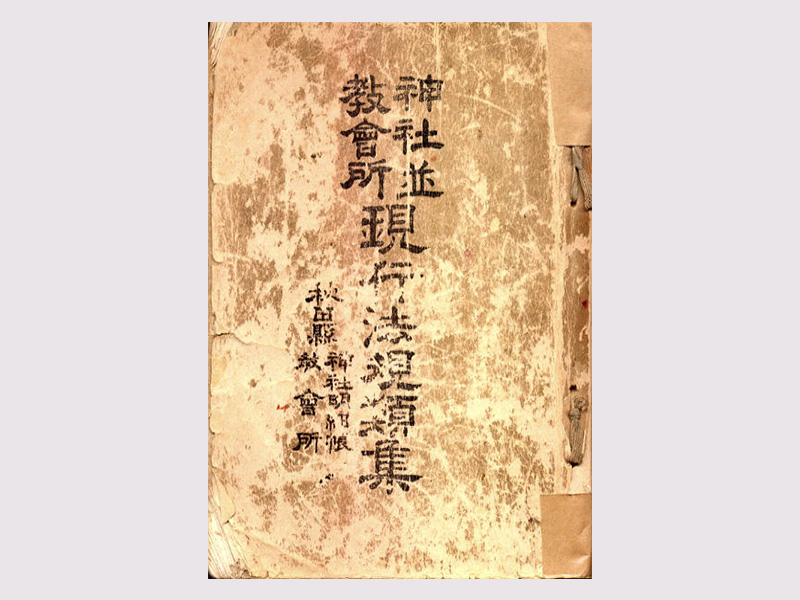 神社並
教會所
現行法規類集
秋田縣
神社明細帳
教會所